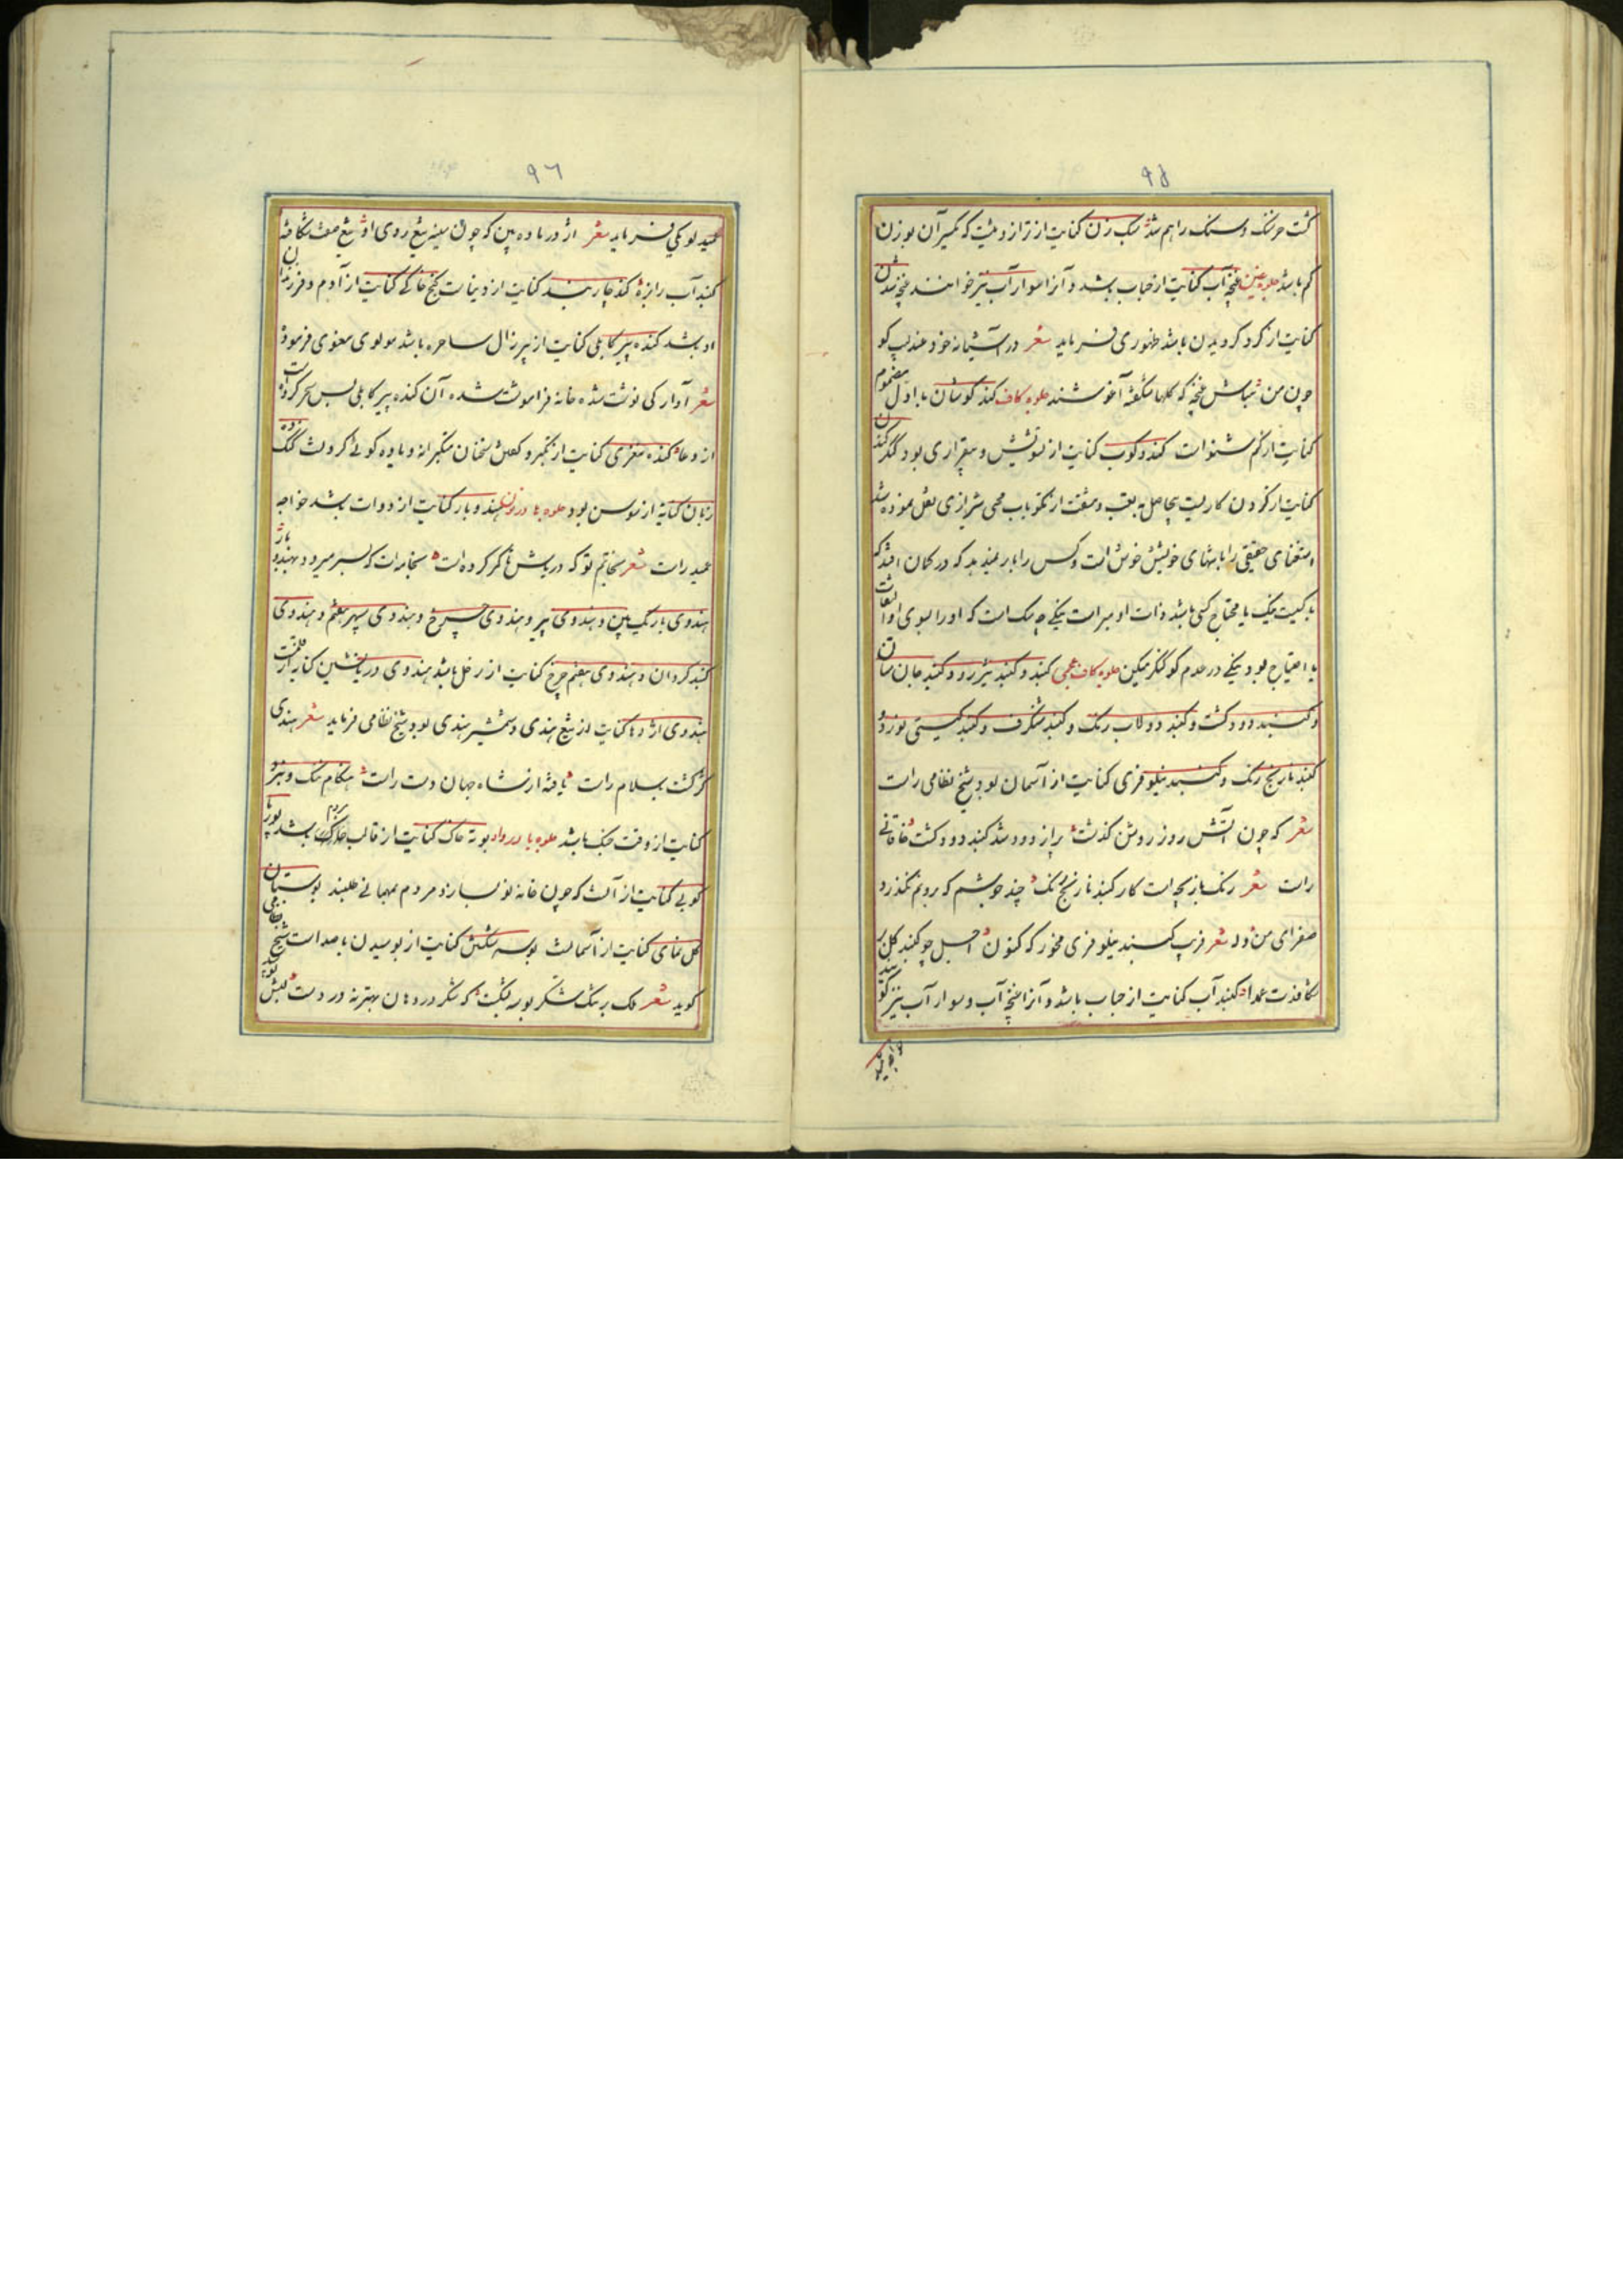 ٩٥
کشت خرسنک و سنک راهم شد سنک زن کنایت از ترازوئیست که یکسر آن بوزن
کم باشد جلوه غین غنچه آب کنایت از حباب باشد و آنرا سوار آب نیز خوانند غنچه شدن
کنایت از کرد کردیدن باشد ظهوری فرماید شعر در آشیانه خود عندلیب کو
چون من مباش غنچه که کلها شکفته آغوشند جلوه کاف کند کوشان با اول مضموم
کنایت از کم شنوا است کند و کوب کنایت از تشویش و بیقراری بود کنکر کندن
کنایت از کردن کاریست بیحاصل به تعب و مشقت از مکتوبات محی شیرازی نقل نموده شد
استغنای حقیقی را با بنهای خویش خوش است و کس را بار نمیدهد که در کمان افتد که
باید کیست یا محتاج کسی باشد ذات او مبراست یکی چه یک است که او را بسوی او التفات
یا احتیاج بود یکی در عدم کو کنکر میکن جلوه کاف عجمی کنبد و کنبد تیزرو و کنبد جان ستان
و کنبد دودکشت و کنبد دولاب رنک و کنبد شکرف و کنبد کیتی نورد و
کنبد نارنج رنک و کنبد نیلوفری کنایت از آسمان بود شیخ نظامی راست
شعر که چون آتش روز روشن کذشت پر از دود شد کنبد دودکشت خاقانی
راست شعر رنک بازیچه است کار کنبد نارنج رنک چند جوشم که بروم نکذرد
صفرای من وله شعر فریب کنبد نیلوفری مخور که کنون اجل چو کنبد کل بر
شکافدت عمدا کنبد آب کنایت از حباب باشد و آنرا غنچه آب و سوار آب نیز کویند
٩٦
عمید لوبکی فرماید شعر اژدر باده بین که چون سینه تیغ روی او تیغ صفت شکافته
کنبد آب رابزه کند چاربند کنایت از دنیاست کنج خاکی کنایت از آدم و فرزندان
او باشد کنده پیر کابلی کنایت از پیرزال ساحره باشد مولوی معنوی فرموده است
شعر آوارکی نوشت شده خانه فراموشت شده آن کنده پیر کابلی بس سحر کردت
از دغا کنده مغزی کنایت از تکبر و کفتن سخنان متکبرانه و یاوه کوئی کردنست کنک
زبان کنایه از سوسن بود جلوه ها در نون هندوبار کنایت از دوات باشد خواجه
عمید راست شعر
هندوی باریک بین و هندوی پیر و هندوی چرخ و هندوی سپهر هفتم و هندوی
کنبد کردان و هندوی هفتم چرخ کنایت از زحل باشد هندوی دریانشین کنایه از قلمست
هندوی اژدها کنایت از تیغ هندی و شمشیر هندی بود شیخ نظامی فرماید شعر هندی
کنایت از وقت جنک باشد جلوه با در واو بوته خاک کنایت از قالب خاکی مردم باشد
کوبی کنایت از آنست که چون خانه نو سازند مردم بمهمانی طلبند بوستان
کل نمای کنایت از آسمانست بوسه شکستن کنایت از بوسیدن با صداست شیخ نظامی
کوید شعر ملک بر تنک شکر بوسه بشکست که شکر در دهان بهتر نه در دست